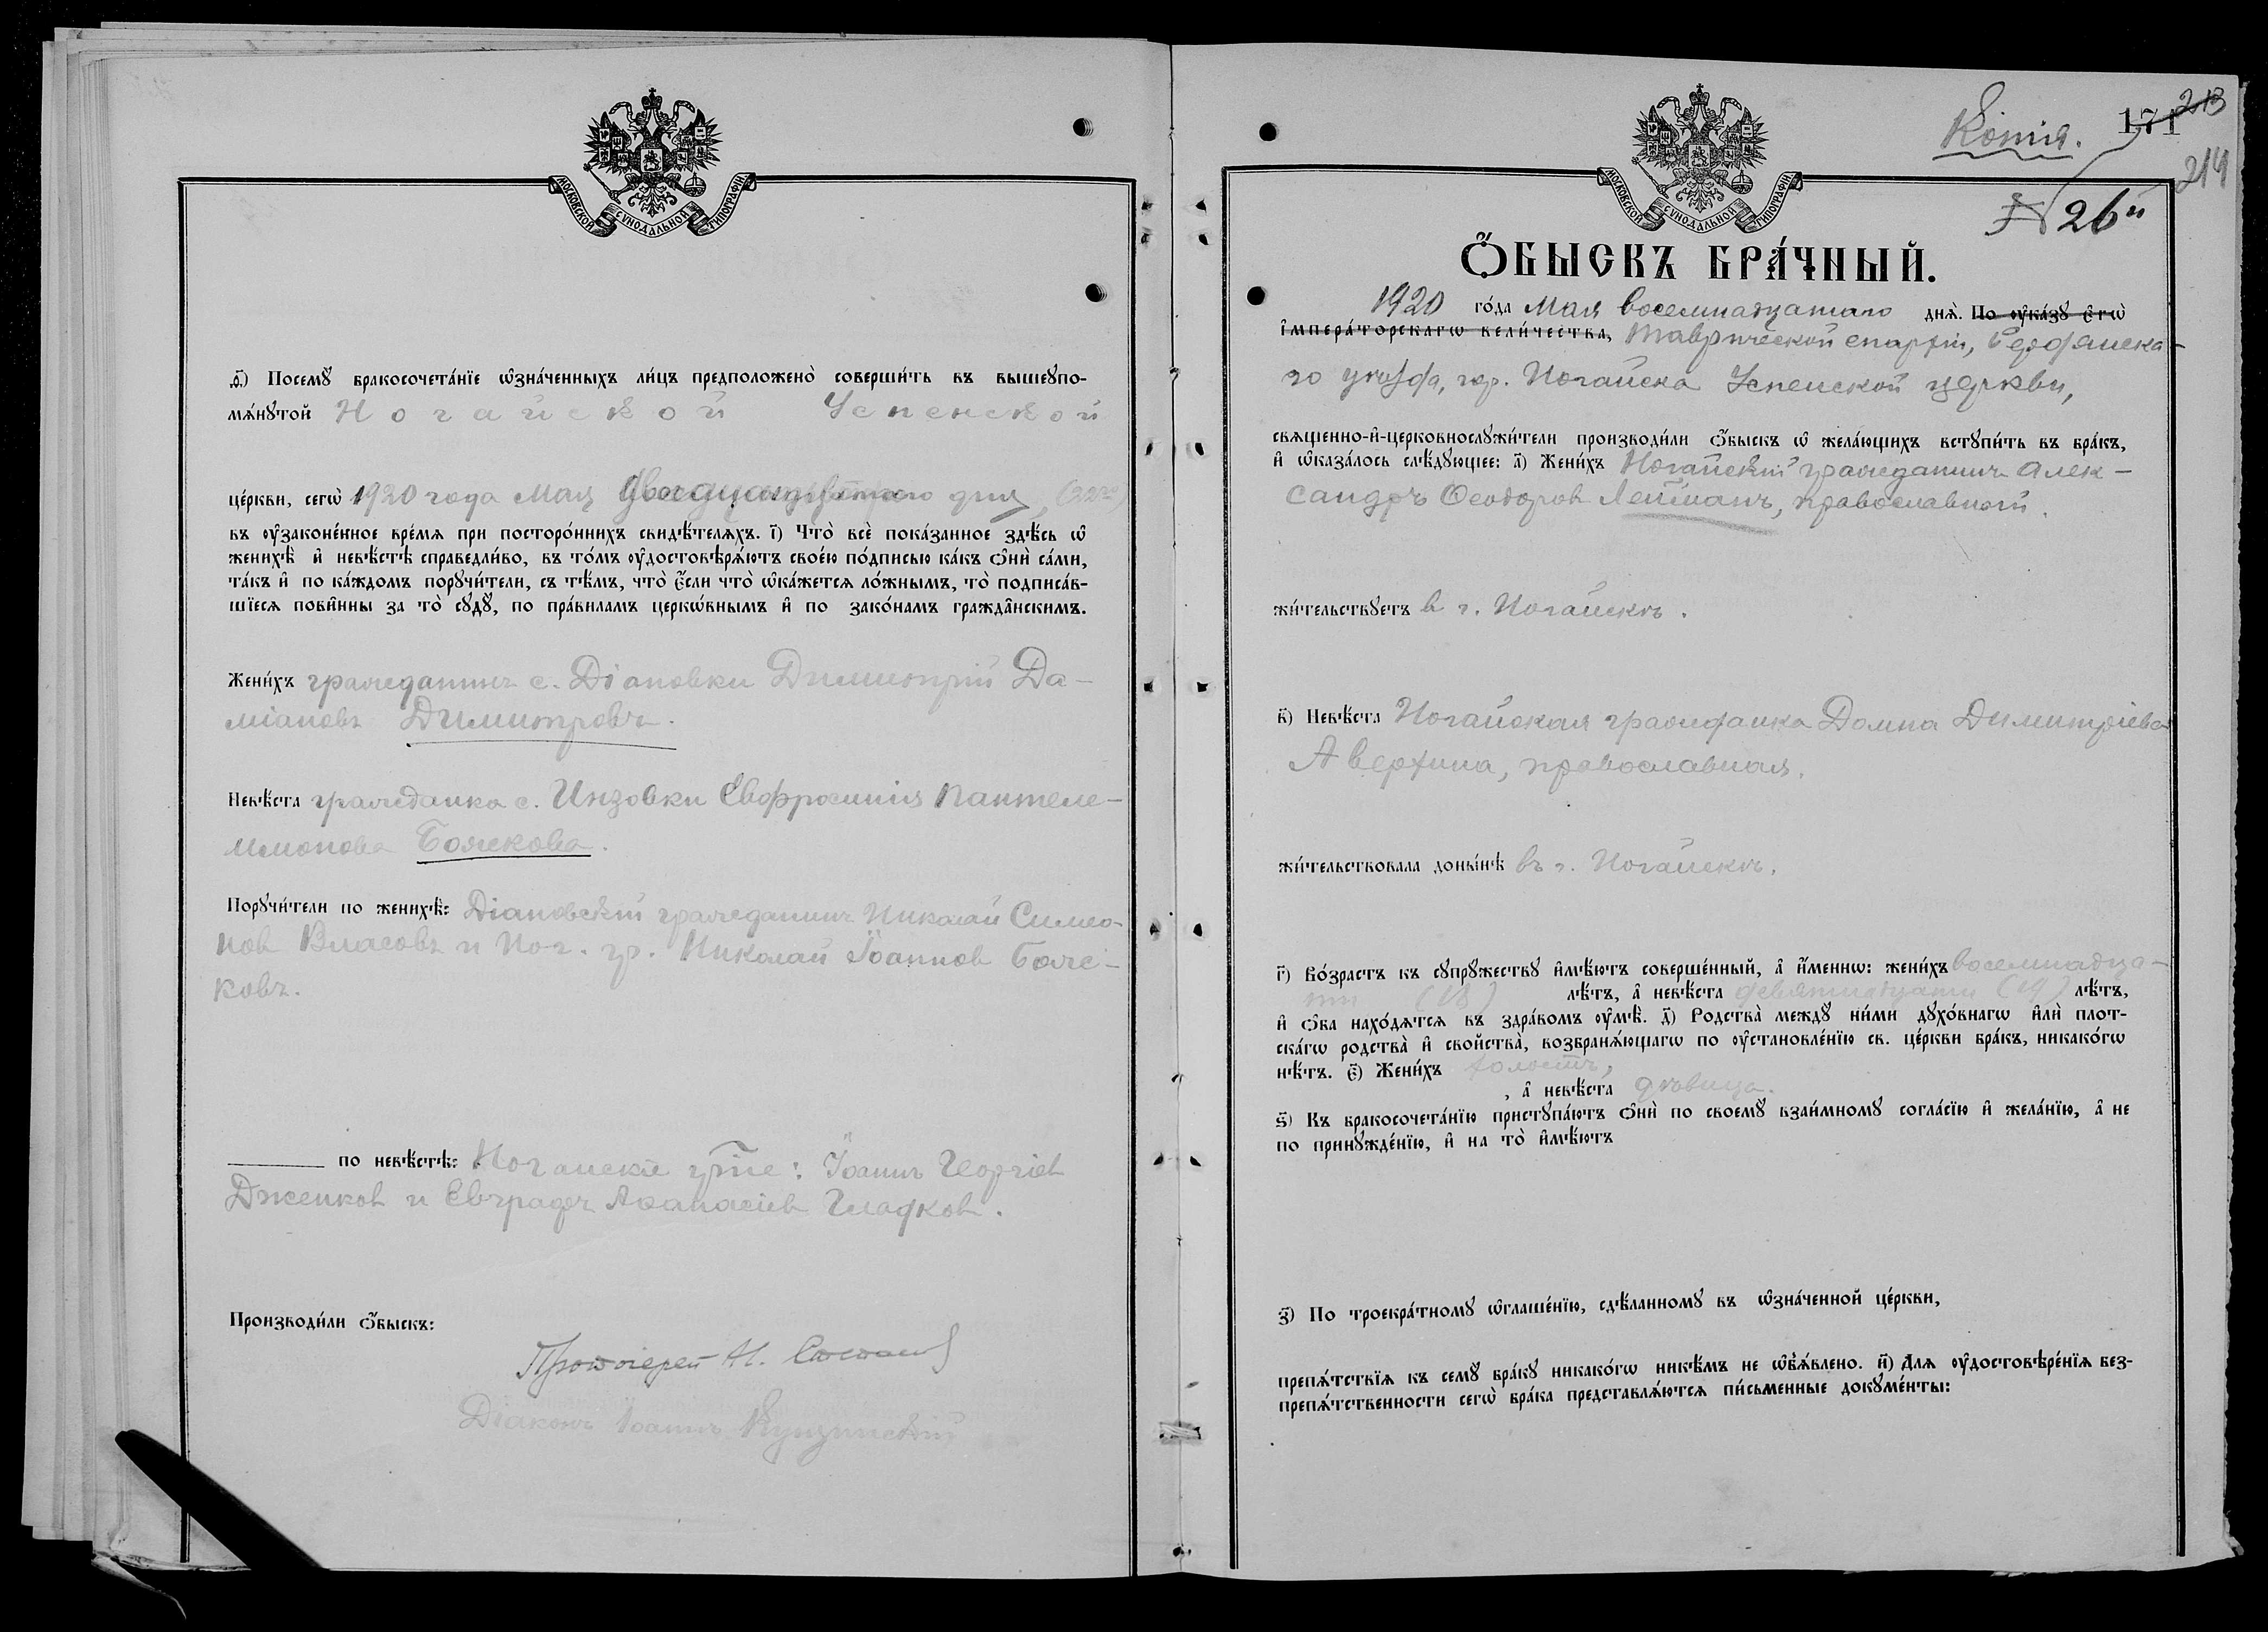 МОСКОВСКОЙ СѴНОДАЛЬНОЙ ТИПОГРАФІИ
ѳ҃) Посемꙋ̀ бракосочета́нїе ѡ҆зна́ченныхъ ли́цъ предположено̀ соверши́ть въ вышеꙋпо-
мѧ́нꙋтой Ногайской Успенской
це́ркви, сегѡ̀ 1920 года Мая дня, (22го)
въ ᲂу҆законе́нное вре́мѧ при посторо́ннихъ свидѣ́телѧхъ. і҃) Что̀ всѐ пока́занное здѣ́сь ѡ҆
женихѣ̀ и҆ невѣ́стѣ справедли́во, въ то́мъ ᲂу҆достовѣрѧ́ютъ свое́ю по́дписью ка́къ ѻ҆нѝ са́ми,
та́къ и҆ по ка́ждомъ порꙋчи́тели, съ тѣ́мъ, что̀ є҆́сли что̀ ѡ҆ка́жетсѧ ло́жнымъ, то̀ подписа́в-
шїесѧ пови́нны за то̀ сꙋдꙋ̀, по пра́виламъ церко́внымъ и҆ по зако́намъ гражда́нскимъ.
Жени́хъ гражданинъ с. Діановки Димитрій Да-
міановъ Димитровъ.
Невѣ́ста гражданка с. Инзовки Евфросинія Пантеле-
имонова Божкова.
Порꙋчи́тели по женихѣ̀: Діановскій гражданинъ Николай Симео-
нов Власовъ и Ног. гр. Николай Іоаннов Бож-
ковъ.
по невѣ́стѣ: Ногайскіе гр̃не: Іоаннъ Георгіев
Дженков и Евграфъ Аѳанасіев Гладков.
Производи́ли ѻ҆́быскъ:
Протоіерей Н.
Діаконъ Іоаннъ
Копія.
171 213
214
МОСКОВСКОЙ СѴНОДАЛЬНОЙ ТИПОГРАФІИ
№ 26й
Ѻ҆́БЫСКЪ БРА́ЧНЫЙ.
1920 го́да Мая восемнадцатаго днѧ̀. По ᲂу҆ка́зꙋ є҆гѡ̀
і҆мпера́торскагѡ вели́чества, Таврической епархіи, Бердянска-
го уѣзда, гор. Ногайска Успенской церкви,
свѧще́нно-и҆-церковнослꙋжи́тели производи́ли ѻ҆́быскъ ѡ҆ жела́ющихъ встꙋпи́ть въ бра́къ,
и҆ ѡ҆каза́лось слѣ́дꙋющее: а҃) Жени́хъ Ногайскій гражданинъ Алек-
сандръ Ѳеодоров Лейманъ, православный.
жи́тельствꙋетъ в г. Ногайскѣ.
в҃) Невѣ́ста Ногайская гражданка Домна Димитріева
Аверхина, православная.
жи́тельствовала доны́нѣ въ г. Ногайскѣ.
г҃) Во́зрастъ къ сꙋпрꙋ́жествꙋ и҆мѣ́ютъ соверше́нный, а҆ и҆́меннѡ: жени́хъ восемнадца-
ти (18) лѣ́тъ, а҆ невѣ́ста девятнадцати (19) лѣ́тъ,
и҆ ѻ҆́ба нахо́дѧтсѧ въ здра́вомъ ᲂу҆мѣ̀. д҃) Родства̀ междꙋ ни́ми дꙋхо́внагѡ и҆лѝ плот-
ска́гѡ родства̀ и҆ свойства̀, возбранѧ́ющагѡ по ᲂу҆становле́нїю св. це́ркви бра́къ, никако́гѡ
нѣ́тъ. є҃) Жени́хъ холостъ,
, а҆ невѣ́ста дѣвица.
ѕ҃) Къ бракосочета́нїю пристꙋпа́ютъ ѻ҆нѝ по своемꙋ̀ взаи́мномꙋ согла́сїю и҆ жела́нїю, а҆ не
по принꙋжде́нїю, и҆ на то̀ и҆мѣ́ютъ
з҃) По троекра́тномꙋ ѡ҆глаше́нїю, сдѣ́ланномꙋ въ ѡ҆зна́ченной це́ркви,
препѧ́тствїѧ къ семꙋ̀ бра́кꙋ никако́гѡ никѣ́мъ не ѡ҆бъѧ́влено. и҃) Для ᲂу҆достовѣре́нїѧ без-
препѧ́тственности сегѡ̀ бра́ка представлѧ́ютсѧ пи́сьменные докꙋме́нты: